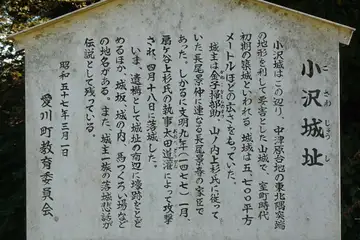 小沢城址
こさわじょうし
小沢城はこの辺り、中津原台地の東北隅突端
の地形を利して要害とした山城で、室町時代
初期の築城といわれる。城域は五、七〇〇平方
メートルほどの広さをもっていた。
城主は金子掃部助、山ノ内上杉氏に従って
いた長尾景仲に連なる長尾景春の家臣で
あった。しかるに文明九年(一四七七)一月、
扇ケ谷上杉氏の執事太田道灌によって攻撃
され、四月十八日に落城した。
いま、遺構として城址の南辺に壕跡をとど
めるほか、城坂、城の内、馬つくろい場など
の地名がある。また、城主一族の落城悲話が
伝説として残っている。
昭和五十七年三月一日
愛川町教育委員会